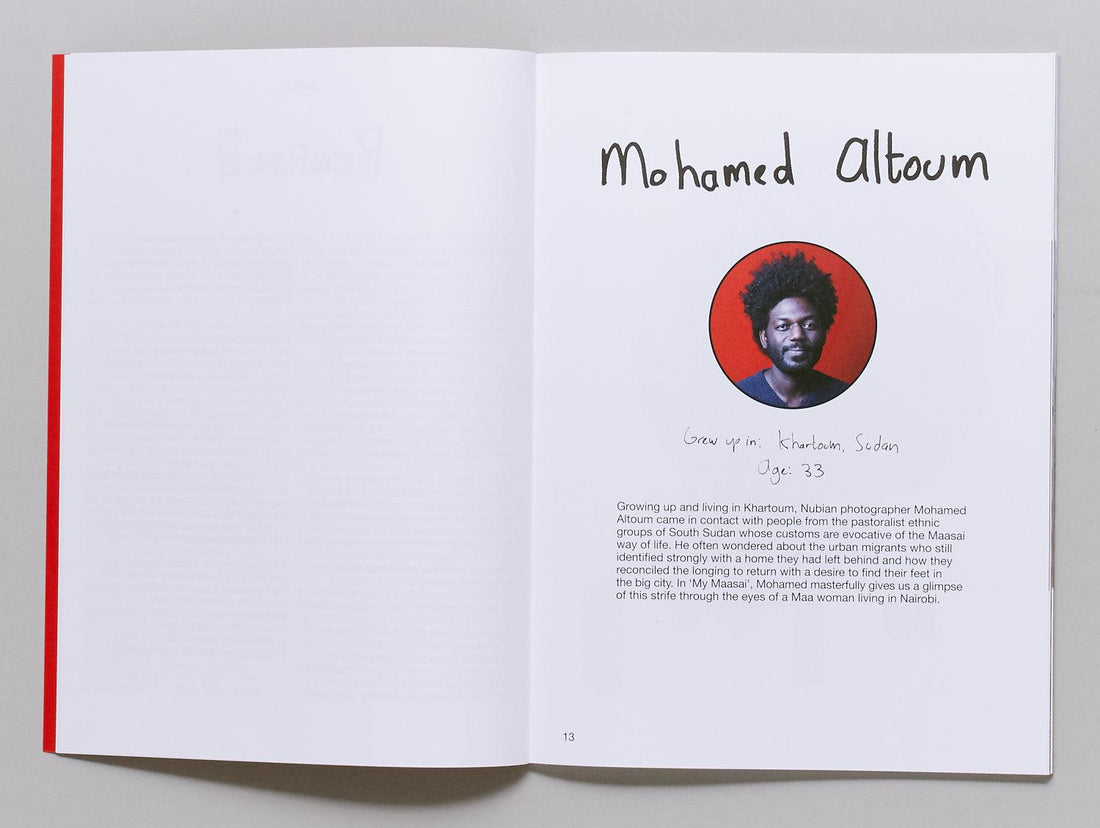 Mohamed Altoum
Grew up in: Khartoum, Sudan
Age: 33
Growing up and living in Khartoum, Nubian photographer Mohamed
Altoum came in contact with people from the pastoralist ethnic
groups of South Sudan whose customs are evocative of the Maasai
way of life. He often wondered about the urban migrants who still
identified strongly with a home they had left behind and how they
reconciled the longing to return with a desire to find their feet in
the big city. In ‘My Maasai’, Mohamed masterfully gives us a glimpse
of this strife through the eyes of a Maa woman living in Nairobi.
13